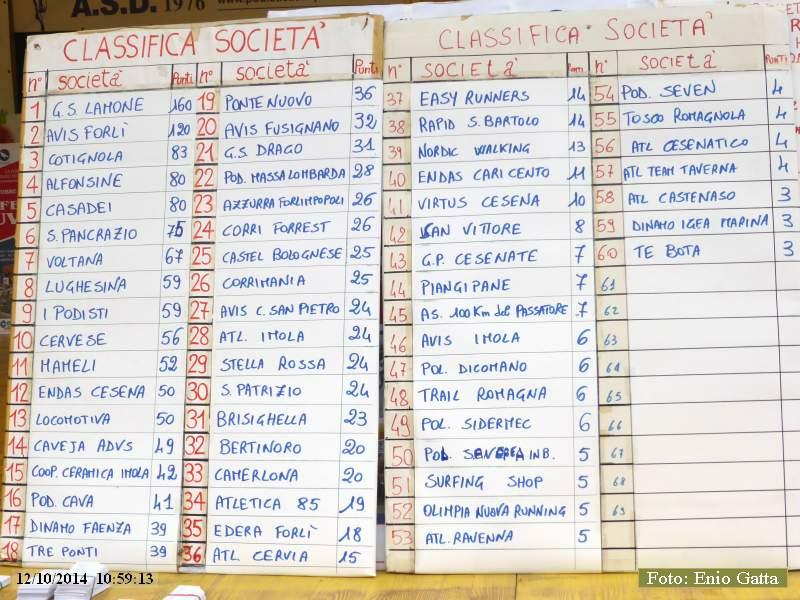 A.S.D. 1976
CLASSIFICA SOCIETA'
n° società Punti
1 G.S. LAMONE 160
2 AVIS FORLÌ 120
3 COTIGNOLA 83
4 ALFONSINE 80
5 CASADEI 80
6 S. PANCRAZIO 75
7 VOLTANA 67
8 LUGHESINA 59
9 I PODISTI 59
10 CERVESE 56
11 MAMELI 52
12 ENDAS CESENA 50
13 LOCOMOTIVA 50
14 CAVEJA ADVS 49
15 COOP. CERAMICA IMOLA 42
16 POD. CAVA 41
17 DINAMO FAENZA 39
18 TRE PONTI 39
n° società Punti
19 PONTENUOVO 36
20 AVIS FUSIGNANO 32
21 G.S. DRAGO 31
22 POD. MASSALOMBARDA 28
23 AZZURRA FORLIMPOPOLI 26
24 CORRI FORREST 26
25 CASTEL BOLOGNESE 25
26 CORRIMANIA 25
27 AVIS C. SAN PIETRO 24
28 ATL. IMOLA 24
29 STELLA ROSSA 24
30 S. PATRIZIO 24
31 BRISIGHELLA 23
32 BERTINORO 20
33 CAMERLONA 20
34 ATLETICA 85 19
35 EDERA FORLÌ 18
36 ATL. CERVIA 15
CLASSIFICA SOCIETA'
n° SOCIETÀ
37 EASY RUNNERS 14
38 RAPID S. BARTOLO 14
39 NORDIC WALKING 13
40 ENDAS CARICENTO 11
41 VIRTUS CESENA 10
42 SAN VITTORE 8
43 G.P. CESENATE 7
44 PIANGIPANE 7
45 AS. 100 Km del PASSATORE 7
46 AVIS IMOLA 6
47 POL. DICOMANO 6
48 TRAIL ROMAGNA 6
49 POL. SIDERMEC 6
50 POL. INB. 5
51 SURFING SHOP 5
52 OLIMPIA NUOVA RUNNING 5
53 ATL. RAVENNA 5
n° SOCIETÀ PUNTI
54 POD. SEVEN 4
55 TOSCO ROMAGNOLA 4
56 ATL CESENATICO 4
57 ATL TEAM TAVERNA 4
58 ATL CASTENASO 3
59 DINAMO IGEA MARINA 3
60 TE BOTA 3
61
62
63
64
65
66
67
68
69
12/10/2014 10:59:13
Foto: Enio Gatta